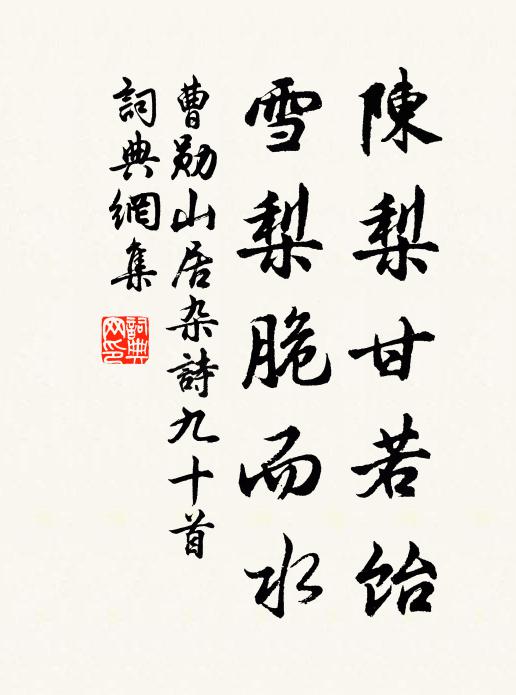 陳梨甘若飴
雪梨脆而水
曹勛山居杂詩九十首
詞典網集
詞典網印